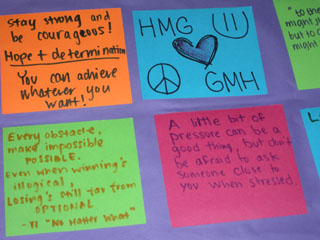 stay strong and
be courageous!
Hope + determination
You can achieve
whatever you
want!
HMG
GMH
"to the
might j
but to c
might
Every obstacle,
make impossible
POSSIBLE.
Even when winning's
illogical,
Losing's still far from
OPTIONAL
- TI "No Matter What"
A little bit of
pressure can be a
good thing, but don't
be afraid to ask
someone close to
you when stressed.
L